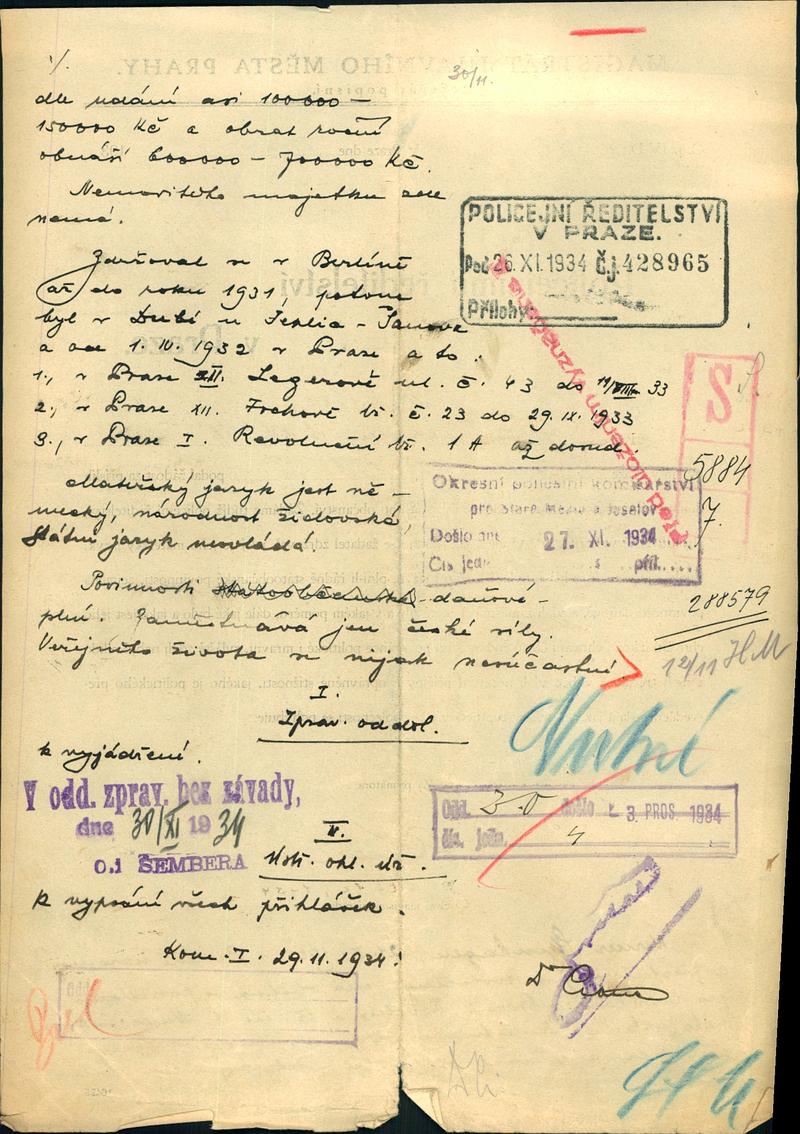 30/11.
dle udání asi 100000 –
150000 Kč a obrat roční
obnáší 600000 – 700000 Kč.
Nemovitého majetku zde
nemá.
POLICEJNÍ ŘEDITELSTVÍ
V PRAZE.
Pod 26.XI.1934 Čj. 428965
Přílohy
Zdržoval se v Berlíně
až do roku 1931, potom
byl v Dubí u Teplic - Šanova
a od 1. IV. 1932 v Praze a to:
1., v Praze XII. Legerově ul. č. 43 do 33
2., v Praze XII. Fochově tř. č. 23 do 29. IX. 1933
3., v Praze I. Revoluční tř. 1A až dosud.
S
5884
7.
Mateřský jazyk jest ně-
mecký, národnost židovská,
státní jazyk neovládá
Okresní policejní komisařství
pro Staré Město a Josefov
Došlo dne 27. XI. 1934
Čís. jedn. příl.
Povinnosti daňové
plní. Zaměstnává jen české síly.
Veřejného života se nijak nesúčastní.
288579
12/11
I.
Zprav. oddol.
k vyjádření.
Nutné
V odd. zprav. bez závady,
dne 30/XI 1934
O.i ŠEMBERA
Odd. 30 došlo - 3. PROS. 1934
čís. jedn. 4
II.
k vypsání všech přihlášek.
Kom. I. 29.11.1934:
Dr